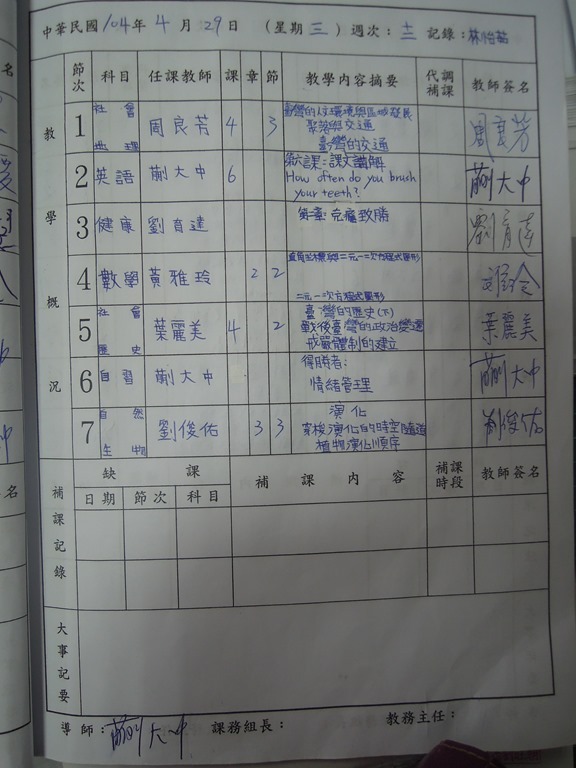 中華民國 104 年 4 月 29 日 （星期 三 ）週次： 十二 記錄：林怡茹
節次 科目 任課教師 課 章 節 教學內容摘要 代調補課 教師簽名
教學概況
1 社會 地理 周良芳 4 3 臺灣的人文環境與區域發展 周良芳
聚落與交通
臺灣的交通
2 英語 蒯大中 6 第六課：課文講解 蒯大中
How often do you brush
your teeth?
3 健康 劉育達 第二章 克癮致勝 劉育達
4 數學 黃雅玲 2 2 直角坐標與二元一次方程式圖形
二元一次方程式圖形
5 社會 歷史 葉麗美 4 2 臺灣的歷史(下) 葉麗美
戰後臺灣的政治變遷
戒嚴體制的建立
6 自習 蒯大中 得勝者： 蒯大中
情緒管理
7 自然 生物 劉俊佑 3 3 演化 劉俊佑
穿梭演化的時空隧道
植物演化順序
補課記錄
缺課 補課內容 補課時段 教師簽名
日期 節次 科目
大事記要
導師：蒯大中 課務組長： 教務主任：